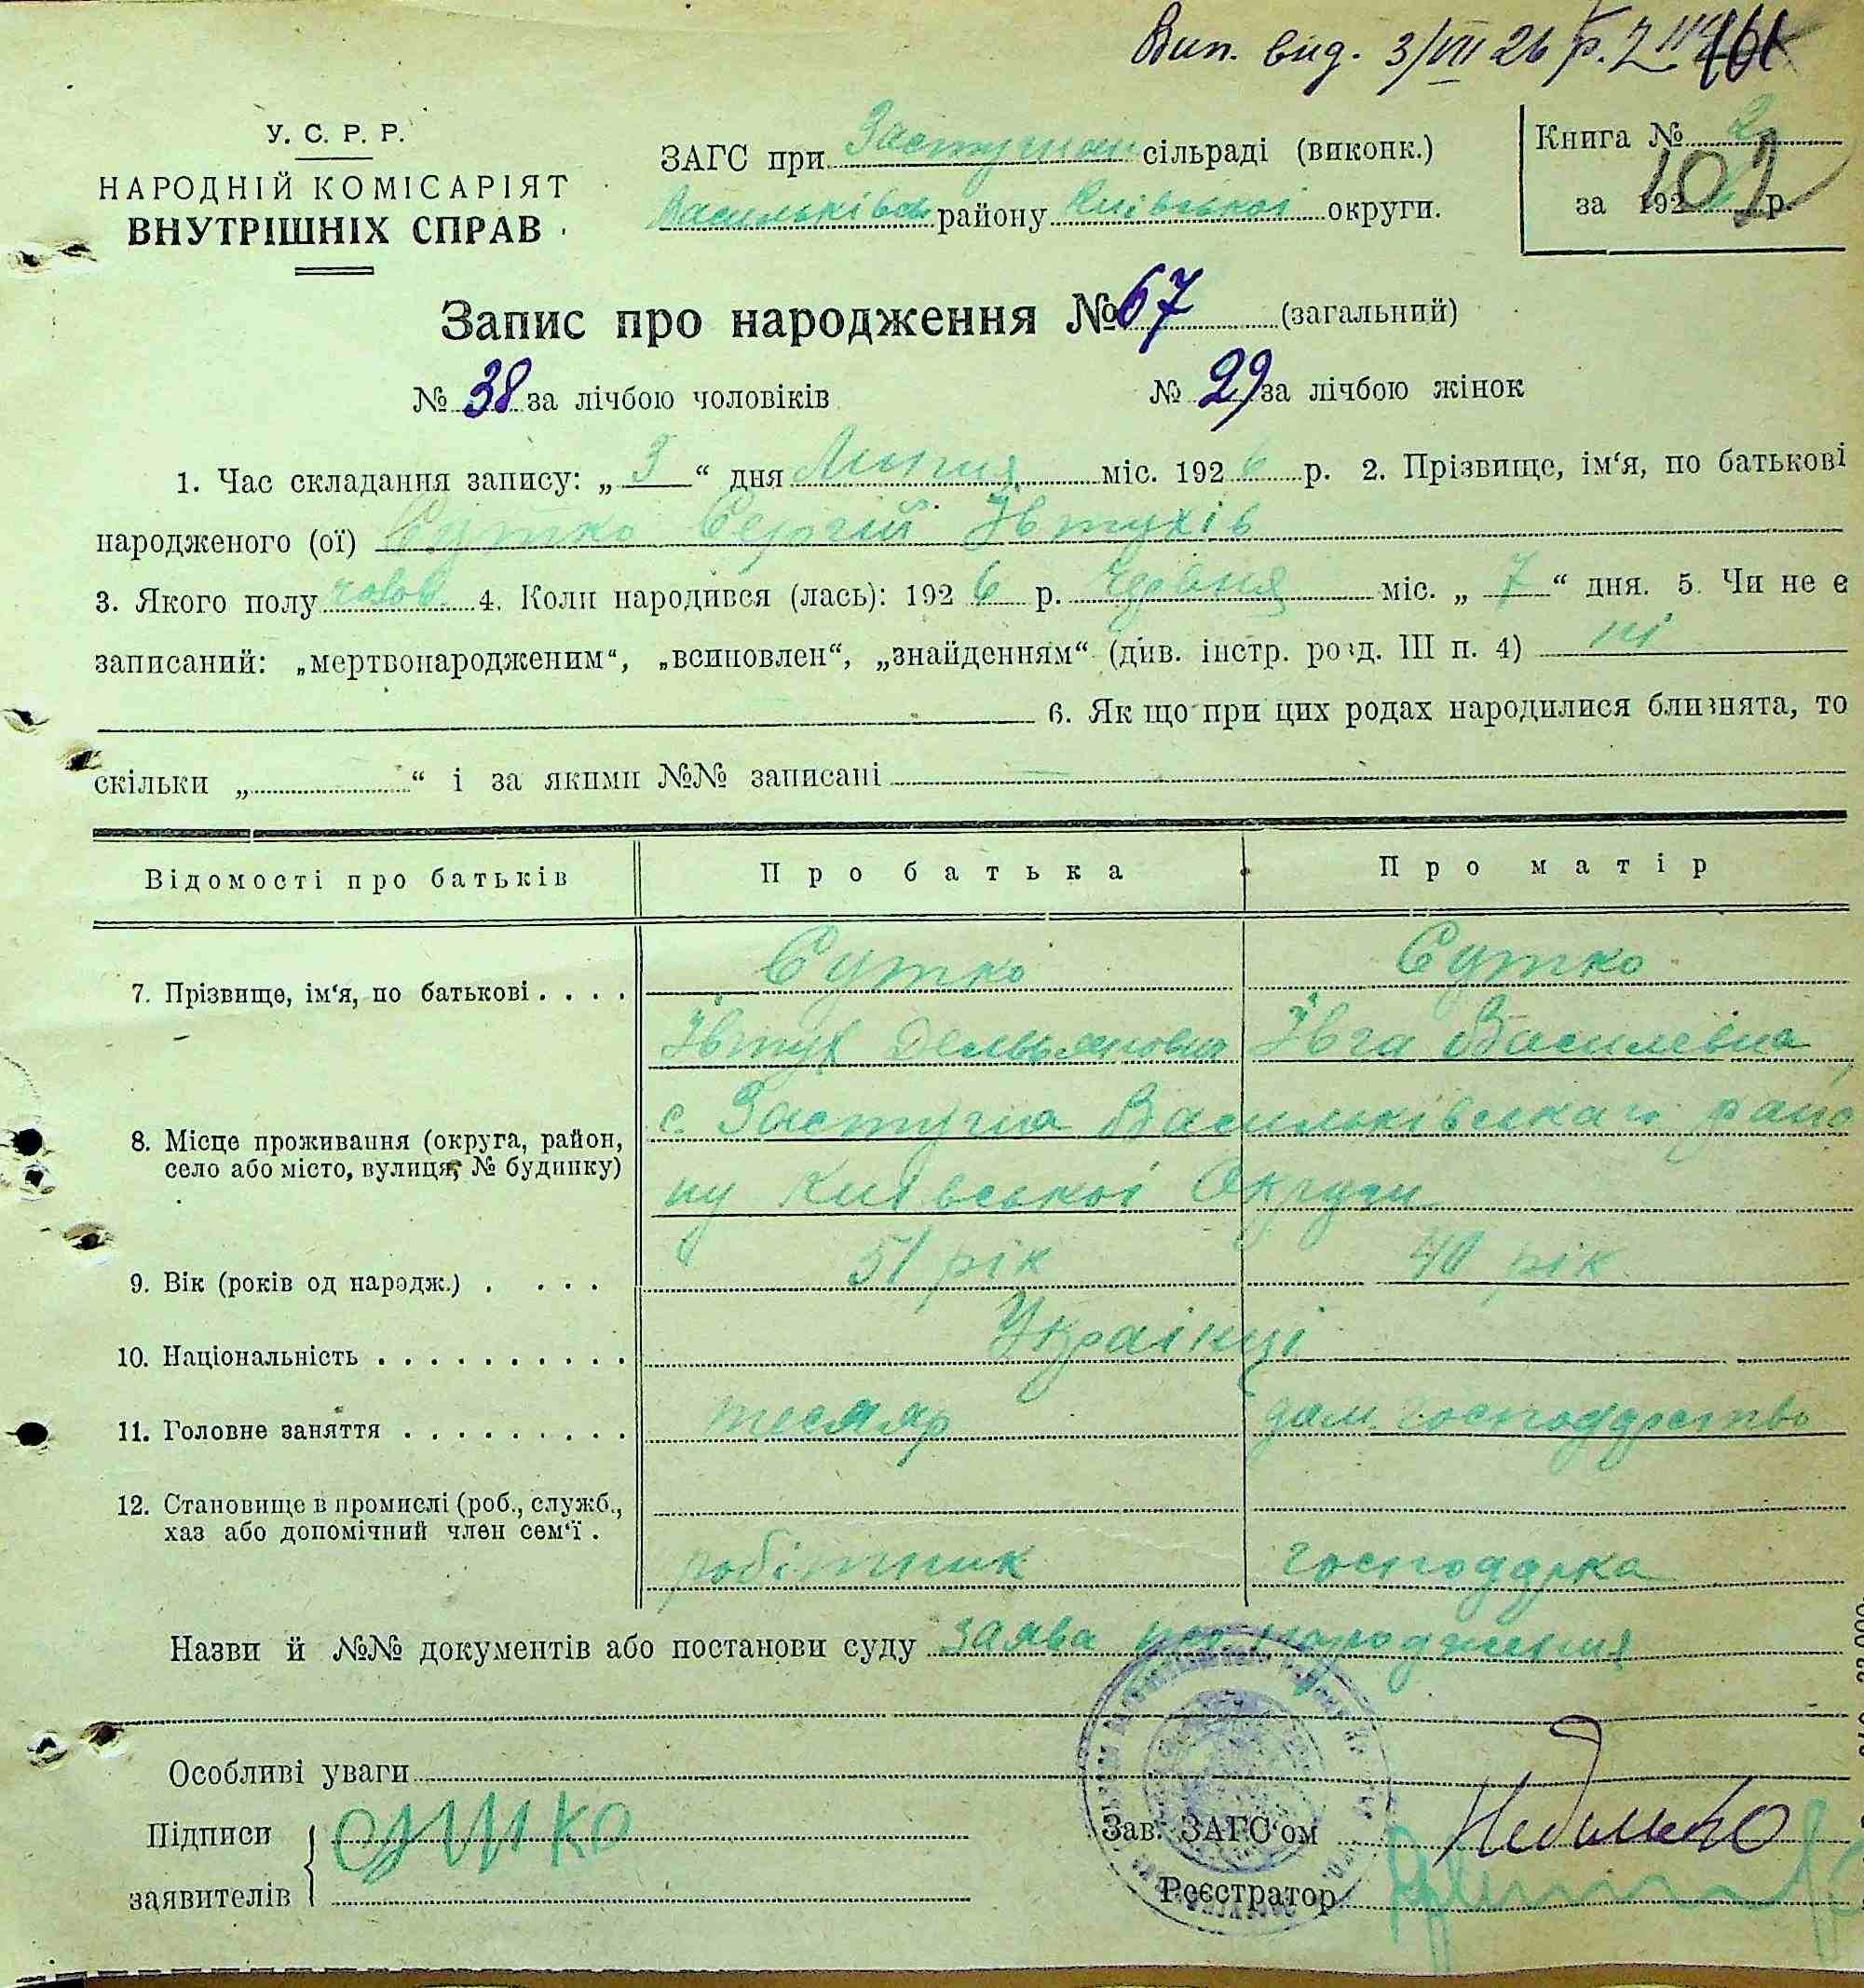 Вип. вид. 3/VII 26 р.
У. С. Р. Р.
НАРОДНІЙ КОМІСАРІЯТ
ВНУТРІШНІХ СПРАВ
ЗАГС при Застугнян сільраді (виконк.)
Васильківськ району Київської округи.
Книга № 2
102
за 192 р.
Запис про народження № 67 (загальний)
№ 38 за лічбою чоловіків № 29 за лічбою жінок
1. Час складання запису: „ 3 “ дня Липня міс. 192 6 р. 2. Прізвище, ім‘я, по батькові
народженого (ої) Сутко Сергій Івтухів
3. Якого полу чолов 4. Коли народився (лась): 192 6 р. червня міс. „ 7 “ дня. 5. Чи не є
записаний: „мертвонародженим“, „всиновлен“, „знайденням“ (див. інстр. розд. III п. 4) ні
6. Як що при цих родах народилися близнята, то
скільки „ “ і за якими №№ записані
Відомості про батьків Про батька Про матір
7. Прізвище, ім‘я, по батькові Сутко Сутко
Івтух Демьянович Івга Василівна
8. Місце проживання (округа, район, с Застугна Васильківського райо
село або місто, вулиця, № будинку) ну Київської Округи
9. Вік (років од народж.) 51 рік 40 рік
10. Національність Українці
11. Головне заняття тесляр дом. господарство
12. Становище в промислі (роб., служб.,
хаз або допомічний член сем‘ї . робітник господарка
Назви й №№ документів або постанови суду заява про народження
Особливі уваги
Підписи
заявителів
Зав. ЗАГС‘ом
Реєстратор